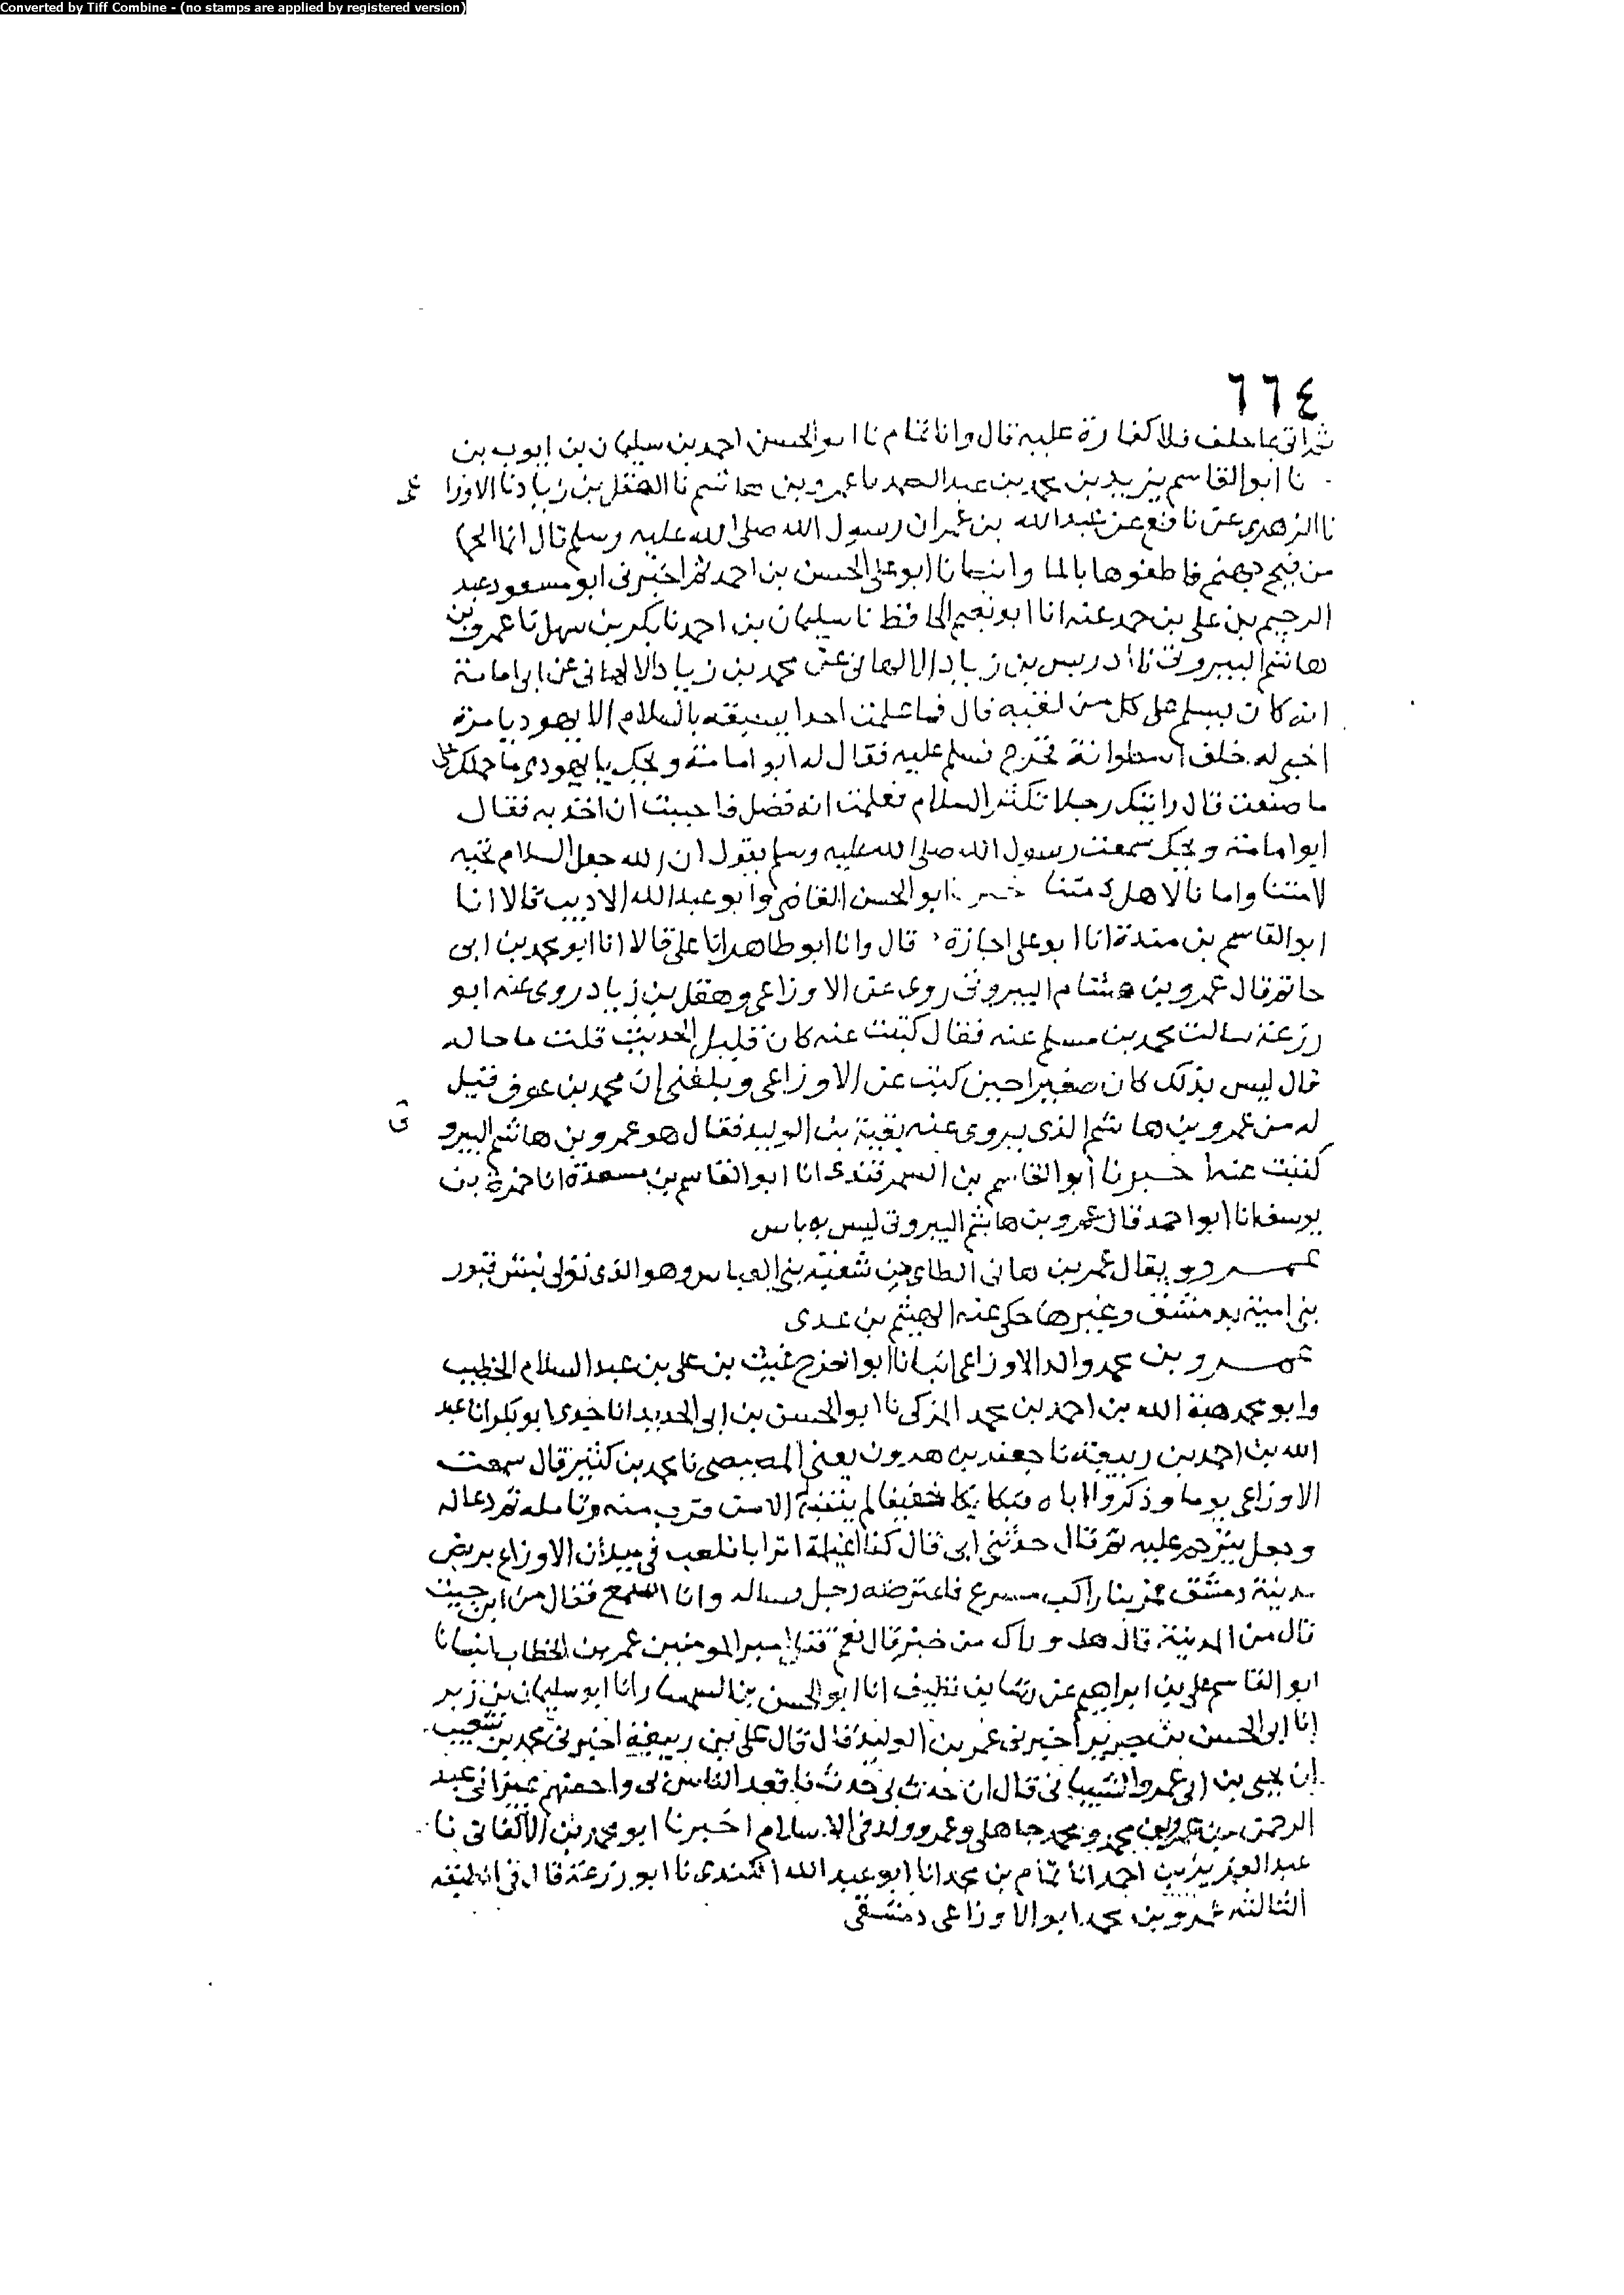 Converted by Tiff Combine - (no stamps are applied by registered version)
٦٦٤
ثم اتى ما حلف فلا كفارة عليه قال وانا تمام نا ابو الحسن احمد بن سليمان بن ايوب بن
نا ابو القاسم يزيد بن محمد بن عبد الصمد نا عمرو بن هاشم نا الهقل بن زياد نا الاوزا عى
نا الزهرى عن نافع عن عبد الله بن عمر ان رسول الله صلى الله عليه وسلم قال انما الحمى
من فيح جهنم فاطفوها بالما وانبانا ابو على الحسن بن احمد ثم اخبرنى ابو مسعود عبد
الرحيم بن على بن حمد عنه انا ابو نعيم الحافظ نا سليمان بن احمد نا بكر بن سهل نا عمرو بن
هاشم البيروتى نا ادريس بن زياد الالهانى عن محمد بن زياد الالهانى عن ابى امامة
انه كان يسلم على كل من لقيه قال فما علمت احدا يسبقه بالسلام الا يهوديا مرة
اختبى له خلف اسطوانة فخرج فسلم عليه فقال له ابو امامة ويحك يا يهودى ما حملك على
ما صنعت قال رايتك رجلا تكثر السلام فعلمت انه فضل فاحببت ان اخذ به فقال
ابو امامة ويحك سمعت رسول الله صلى الله عليه وسلم يقول ان الله جعل السلام تحيه
لامتنا وامانا لاهل ذمتنا ابو الحسن القاضى وابو عبد الله الاديب قالا انا
ابو القاسم بن مندة انا ابو على اجازة قال وانا ابو طاهر انا على قالا انا ابو محمد بن ابى
حاتم قال عمرو بن هشام البيروتى روى عن الاوزاعى وهقل بن زياد روى عنه ابو
زرعة سالت محمد بن مسلم عنه فقال كتبت عنه كان قليل الحديث قلت ما حاله
قال ليس بذلك كان صغيرا حين كتب عن الاوزاعى وبلغنى ان محمد بن عوف قيل
له من عمرو بن هاشم الذى يروى عنه بقية بن الوليد فقال هو عمرو بن هاشم البيرو تى
كتبت عنه اخبرنا ابو القاسم بن السمرقندى انا ابو القاسم بن مسعدة انا حمزة بن
يوسف انا ابو احمد قال عمرو بن هاشم البيروتى ليس به باس
عمرو ويقال عمر بن هانى الطاى من شعية بنى العباس وهو الذى تولى نبش قبور
بنى امية بدمشق وغيرها حكى عنه الهيثم بن عدى
عمرو بن محمد والد الاوزاعى انبانا ابو الفرج غيث بن على بن عبد السلام الخطيب
وابو محمد هبة الله بن احمد بن محمد المزكى نا ابو الحسن بن ابى الحديد انا جدى ابو بكر انا عبد
الله بن احمد بن ربيعة نا جعفر بن هدرون يعنى المصيصى نا محمد بن كثير قال سمعت
الاوزاعى يوما وذكروا اباه فبكا بكا خفيفا لم ينتبه الا من قرب منه وتامله ثم دعا له
وجعل يترحم عليه ثم قال حدثنى ابى قال كنا اغيلمة اترابا نلعب فى ميدان الاوزاع بربض
مدينة دمشق فمر بنا راكب مسرع فاعترضه رجل وساله وانا اسمع فقال من اين جيت
قال من المدينة قال هل وراك من خبر قال نعم قتل امير المومنين عمر بن الخطاب انبانا
ابو القاسم على بن ابراهيم عن رشا بن نظيف انا ابو الحسن بن السمسار انا ابو سليمان بن زبر
انا ابو الحسن بن جرير اخبرنى عمر بن الوليد قال قال على بن ربيعة اخبرنى محمد بن شعيب
ان يحيى بن ابى عمرو الشيبانى قال ان حدث بى حدث فاقعد الناس لى واحقهم عبد
الرحمن بن عمرو بن محمد ومحمد جاهلى وعمرو ولد فى الاسلام اخبرنا ابو محمد بن الاكفانى نا
عبد العزيز بن احمد انا تمام بن محمد انا ابو عبد الله الكندى نا ابو زرعة قال فى الطبقه
الثالثه عمرو بن محمد ابو الاوزاعى دمشقى